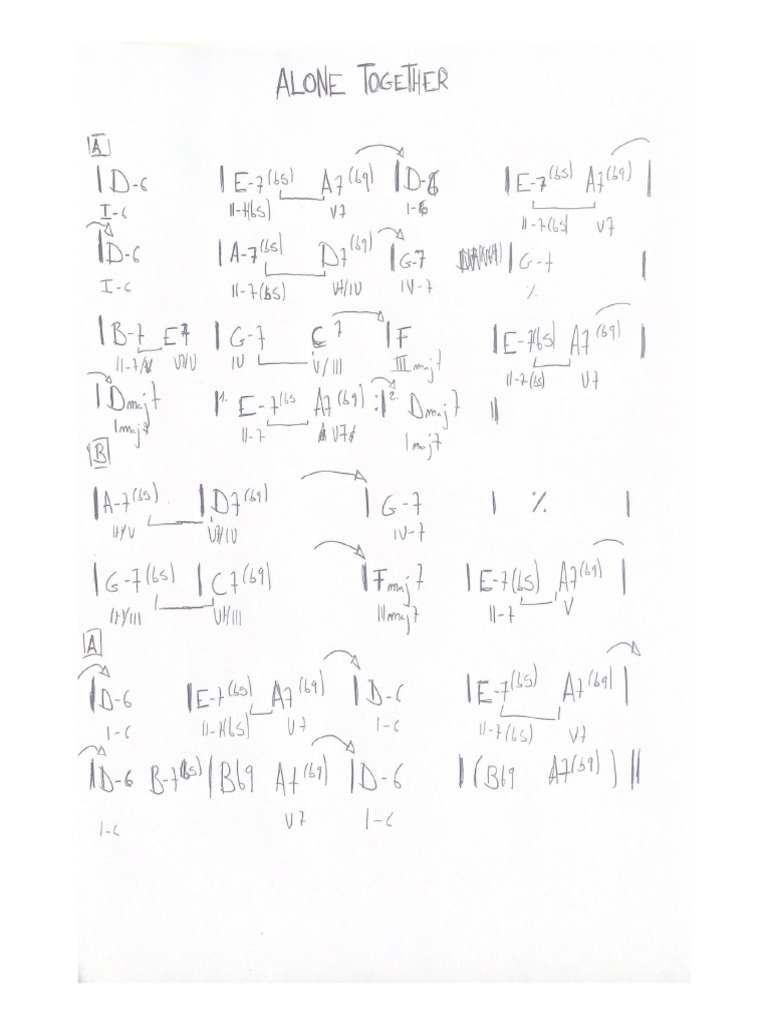 ALONE TOGETHER
A
| D-6 | E-7(b5) A7(b9) | D-6 | E-7(b5) A7(b9) |
I-6 II-7(b5) V7 I-6 II-7(b5) V7
| D-6 | A-7(b5) D7(b9) | G-7 | G-7 |
I-6 II-7(b5) V7/IV IV-7 %
| B-7 E7 | G-7 C7 | F | E-7(b5) A7(b9) |
II-7/V V7/V IV V/III IIImaj7 II-7(b5) V7
| Dmaj7 |1. E-7(b5 A7(b9) :|2 Dmaj7 ||
Imaj7 II-7 V7 Imaj7
B
| A-7(b5) | D7(b9) | G-7 | % |
II/V V7/IV IV-7
| G-7(b5) | C7(b9) | Fmaj7 | E-7(b5) A7(b9) |
II/III V7/III IIImaj7 II-7 V
A
| D-6 | E-7(b5) A7(b9) | D-6 | E-7(b5) A7(b9) |
I-6 II-7(b5) V7 I-6 II-7(b5) V7
| D-6 B-7(b5) | Bb9 A7(b9) | D-6 | (Bb9 A7(b9)) ||
I-6 V7 I-6